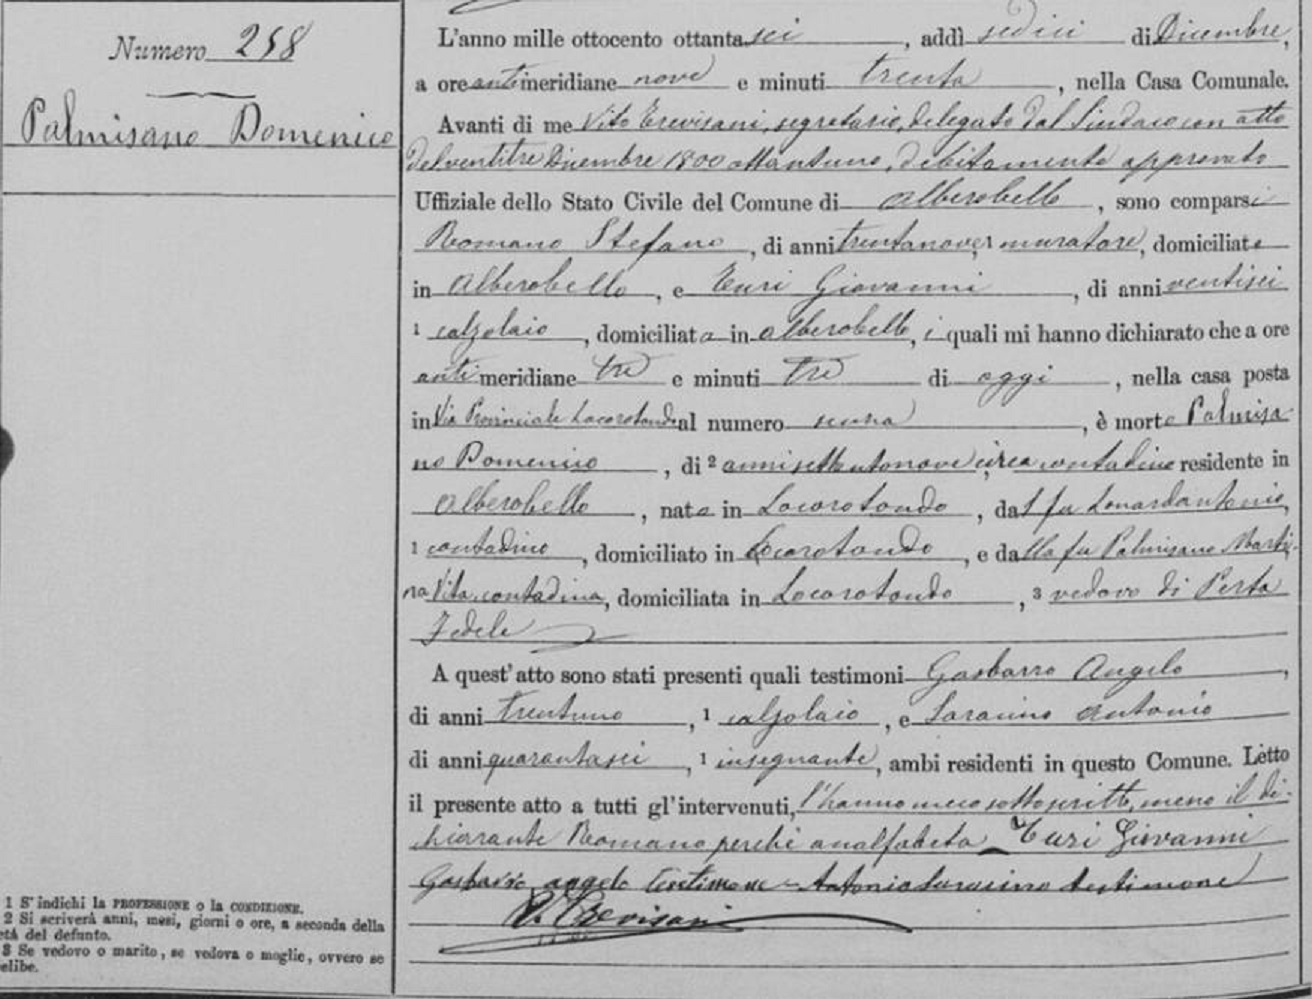 Numero 258
Palmisano Domenico
L'anno mille ottocento ottantasei, addì sedici di Dicembre,
a ore antimeridiane nove e minuti trenta, nella Casa Comunale.
Avanti di me Vito Trevisani, segretario, delegato dal Sindaco con atto
del ventitre Dicembre 1800 ottantuno, debitamente approvato
Uffiziale dello Stato Civile del Comune di Alberobello, sono comparsi
Romano Stefano, di anni trentanove, 1 muratore, domiciliato
in Alberobello, e Turi Giovanni, di anni ventisei
1 calzolaio, domiciliato in Alberobello, i quali mi hanno dichiarato che a ore
antimeridiane tre e minuti tre di oggi, nella casa posta
in Via Provinciale Locorotondo al numero senza, è morto Palmisa-
no Domenico, di 2 anni settantanove circa contadino residente in
Alberobello, nato in Locorotondo, dal fu Leonardantonio,
1 contadino, domiciliato in Locorotondo, e dalla fu Palmisano Marti-
na Vita, contadina, domiciliata in Locorotondo, 3 vedovo di Perta
Fedele
A quest'atto sono stati presenti quali testimoni Gasbarro Angelo,
di anni trentuno, 1 calzolaio, e Saracino Antonio
di anni quarantasei, 1 insegnante, ambi residenti in questo Comune. Letto
il presente atto a tutti gl'intervenuti, l'hanno meco sottoscritto, meno il di-
chiarante Romano perché analfabeta Turi Giovanni
Gasbarro angelo testimone - Antonio Saracino testimone
V. Trevisani
1 S'indichi la PROFESSIONE o la CONDIZIONE.
2 Si scriverà anni, mesi, giorni o ore, a seconda della
età del defunto.
3 Se vedovo o marito, se vedova o moglie, ovvero se
elibe.